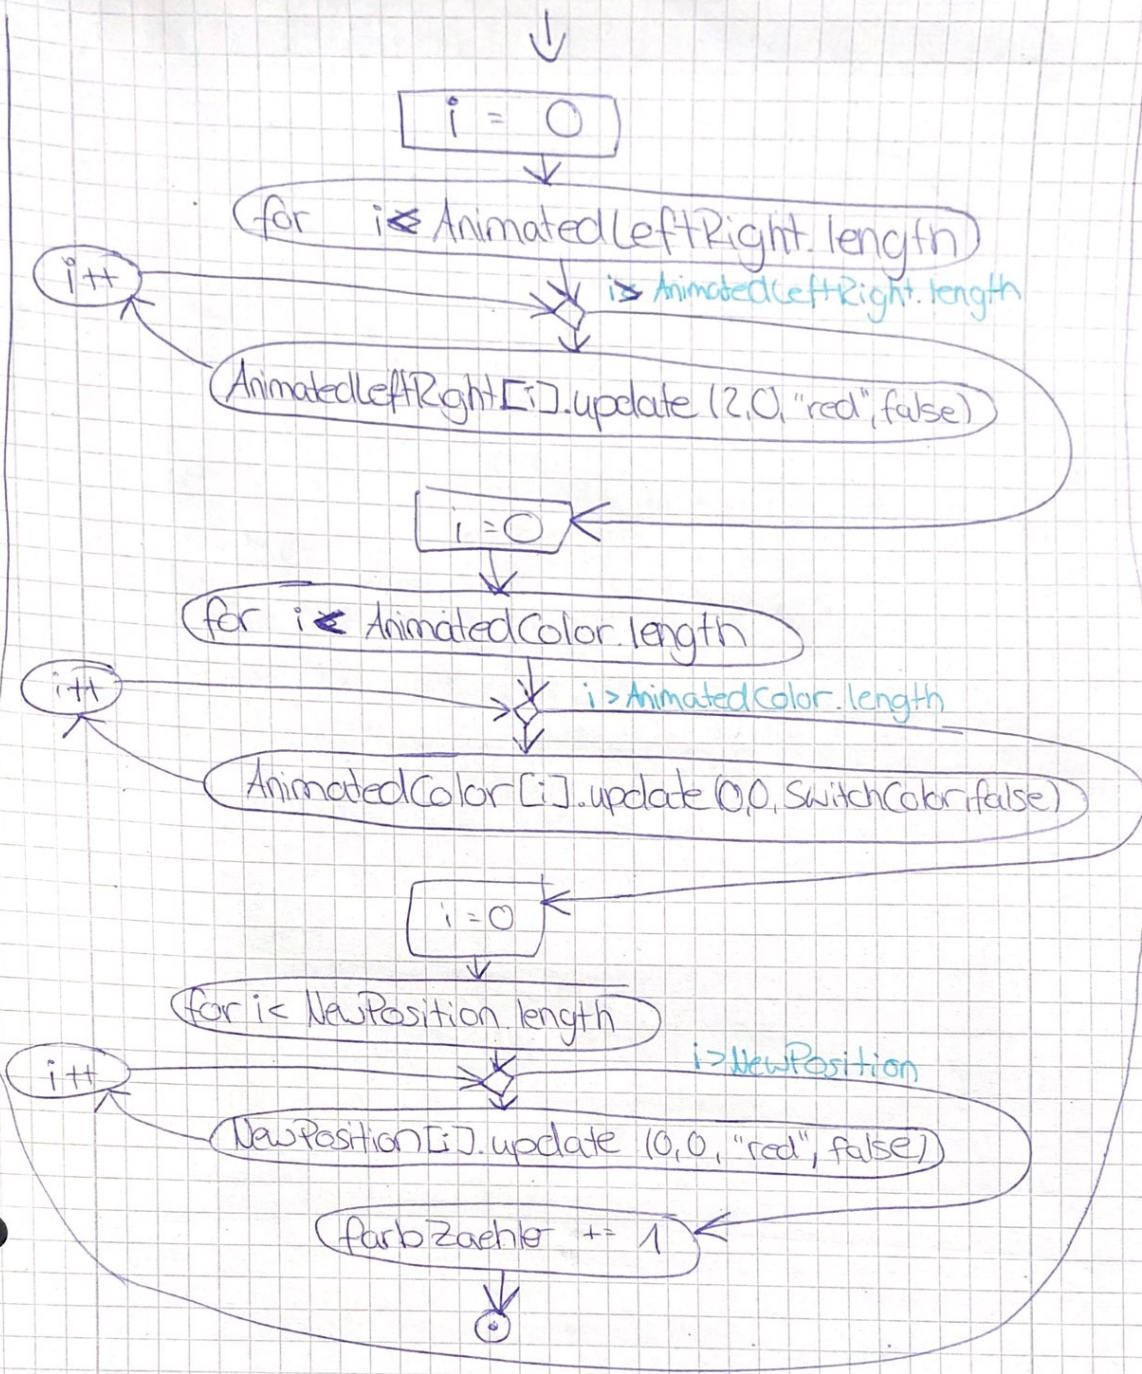 i = 0
for i < AnimatedLeftRight.length
i++
i > AnimatedLeftRight.length
AnimatedLeftRight[i].update (2,0,"red",false)
i = 0
for i < AnimatedColor.length
i++
i > AnimatedColor.length
AnimatedColor[i].update (0,0, SwitchColor, false)
i = 0
for i < NewPosition.length
i++
i > NewPosition
NewPosition[i].update (0,0, "red", false)
farbZaehler += 1